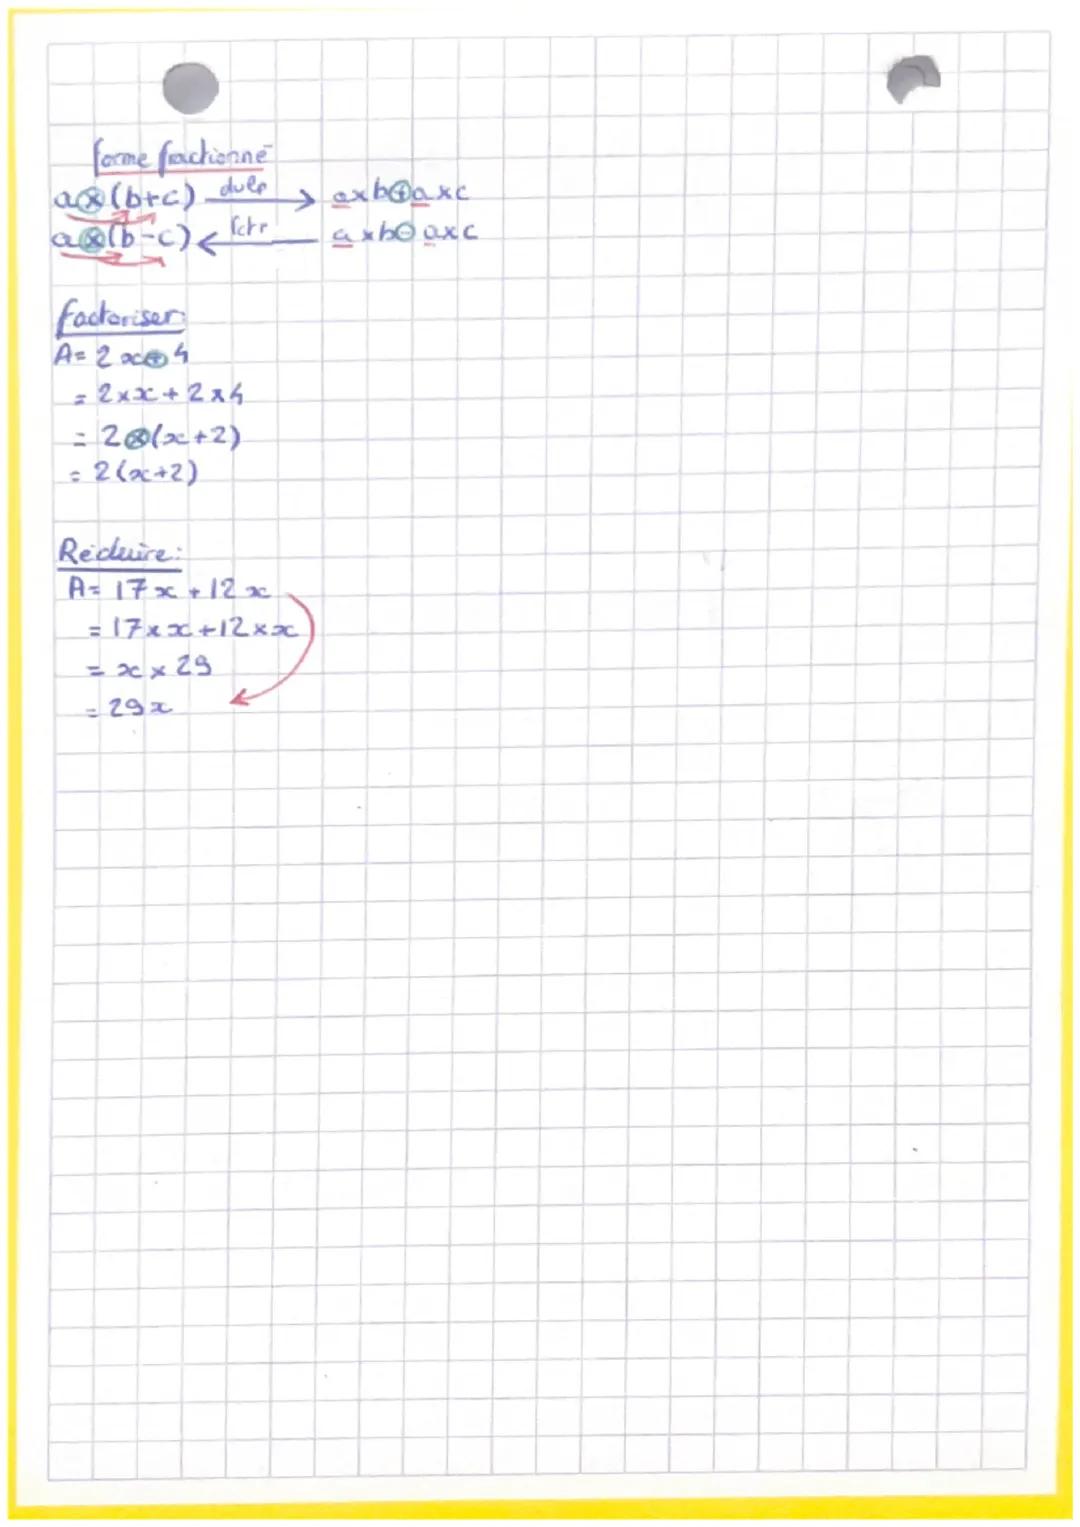 forme fractionné
a⊗(b+c) dvlp → axb⊕axc
a⊗(b-c) ← fctr axb⊖axc
factoriser:
A= 2x⊕4
= 2×x + 2×4
= 2⊗(x+2)
= 2(x+2)
Réduire:
A= 17x + 12x
= 17×x+12×x
= x × 29
= 29x